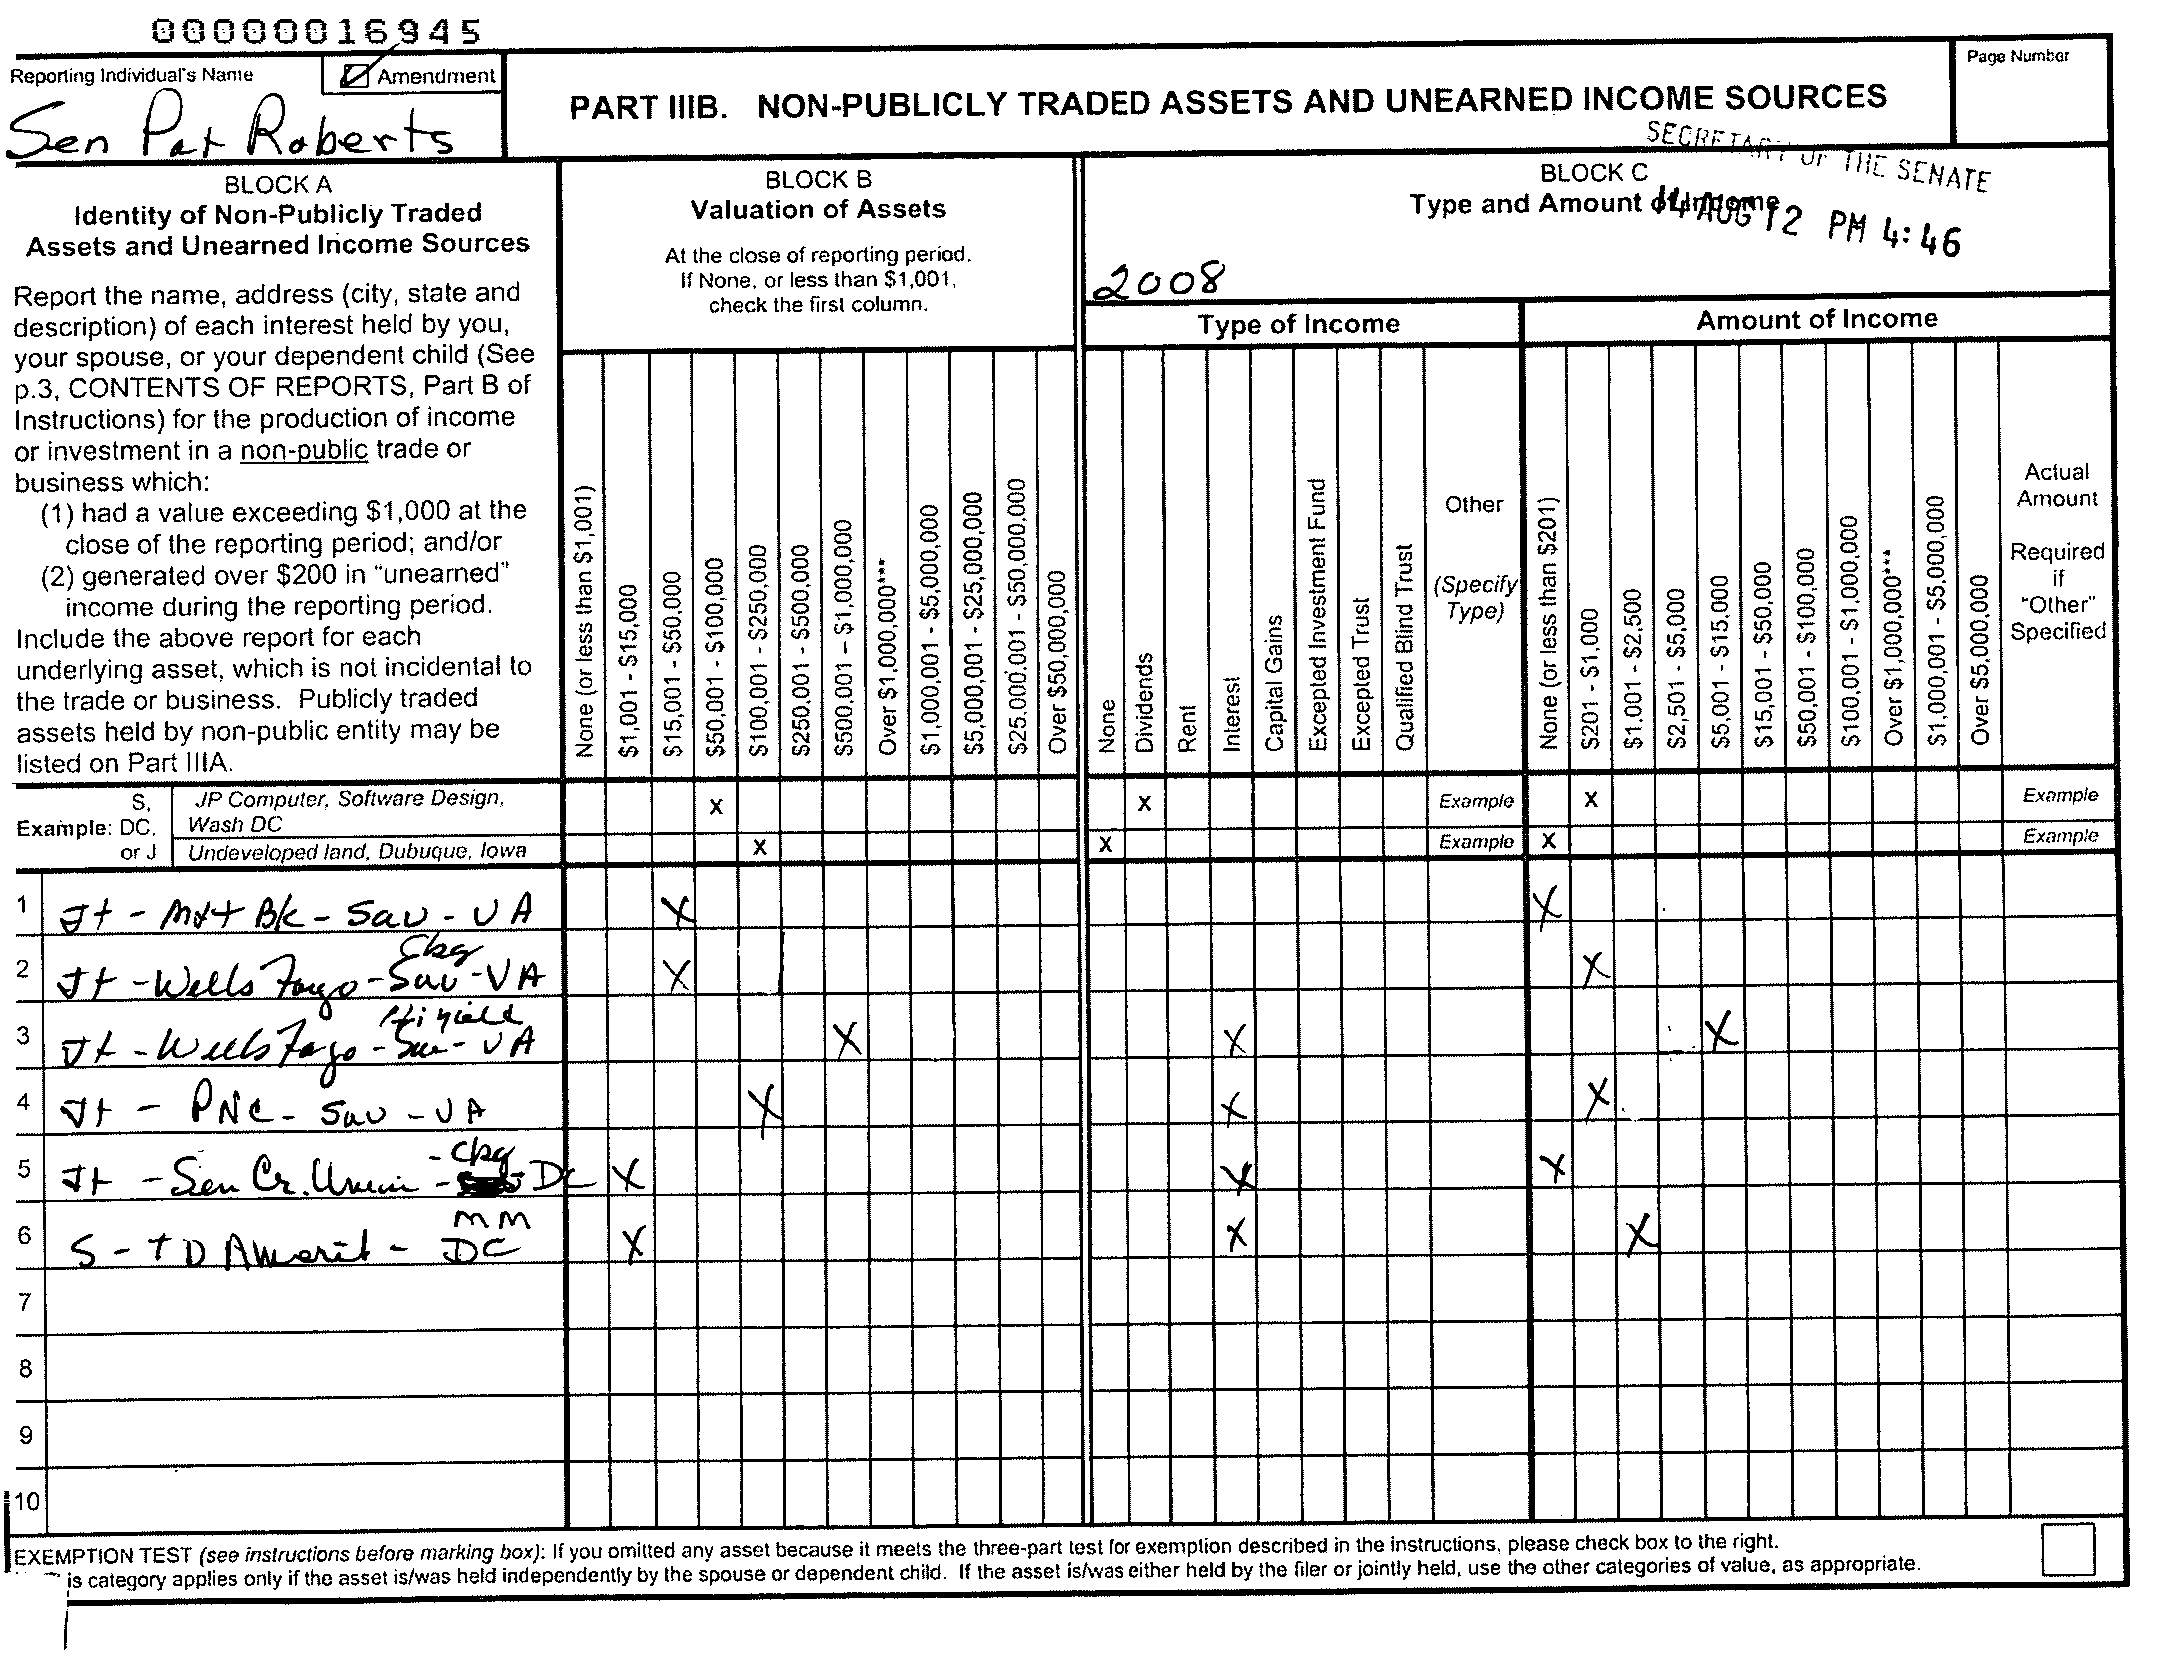 00000016945
Reporting Individual's Name
Amendment
Sen Pat Roberts
PART IIIB. NON-PUBLICLY TRADED ASSETS AND UNEARNED INCOME SOURCES
Page Number
SECRETARY OF THE SENATE
14 AUG 12 PM 4:46
BLOCK A
Identity of Non-Publicly Traded
Assets and Unearned Income Sources
Report the name, address (city, state and
description) of each interest held by you,
your spouse, or your dependent child (See
p.3, CONTENTS OF REPORTS, Part B of
Instructions) for the production of income
or investment in a non-public trade or
business which:
(1) had a value exceeding $1,000 at the
close of the reporting period; and/or
(2) generated over $200 in "unearned"
income during the reporting period.
Include the above report for each
underlying asset, which is not incidental to
the trade or business. Publicly traded
assets held by non-public entity may be
listed on Part IIIA.
BLOCK B
Valuation of Assets
At the close of reporting period.
If None, or less than $1,001,
check the first column.
None (or less than $1,001)
$1,001 - $15,000
$15,001 - $50,000
$50,001 - $100,000
$100,001 - $250,000
$250,001 - $500,000
$500,001 - $1,000,000
Over $1,000,000***
$1,000,001 - $5,000,000
$5,000,001 - $25,000,000
$25,000,001 - $50,000,000
Over $50,000,000
BLOCK C
Type and Amount of Income
2008
Type of Income
None
Dividends
Rent
Interest
Capital Gains
Excepted Investment Fund
Excepted Trust
Qualified Blind Trust
Other
(Specify
Type)
Amount of Income
None (or less than $201)
$201 - $1,000
$1,001 - $2,500
$2,501 - $5,000
$5,001 - $15,000
$15,001 - $50,000
$50,001 - $100,000
$100,001 - $1,000,000
Over $1,000,000***
$1,000,001 - $5,000,000
Over $5,000,000
Actual
Amount
Required
if
"Other"
Specified
Example: S, DC, or J
JP Computer, Software Design,
Wash DC X X Example X Example
Undeveloped land, Dubuque, Iowa X X Example X Example
1 Jt - M&t Bk - Sav - VA X X
Ckg
2 Jt - Wells Fargo - Sav - VA X X
Hi yield
3 Jt - Wells Fargo - Sav - VA X X X
4 Jt - PNC - Sav - VA X X X
- Ckg
5 Jt - Sen Cr. Union - DC X X X
MM
6 S - TD Amerit - DC X X X
7
8
9
10
EXEMPTION TEST (see instructions before marking box): If you omitted any asset because it meets the three-part test for exemption described in the instructions, please check box to the right.
is category applies only if the asset is/was held independently by the spouse or dependent child. If the asset is/was either held by the filer or jointly held, use the other categories of value, as appropriate.